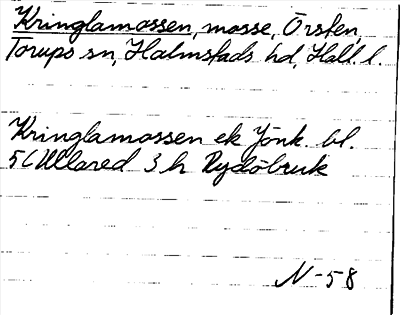 Kringlamossen, mosse, Örsten,
Torups sn, Halmstads hd, Hall. l.
Kringlamossen ek Jönk. bl.
5C Ullared 3 h Rydöbruk
N-58